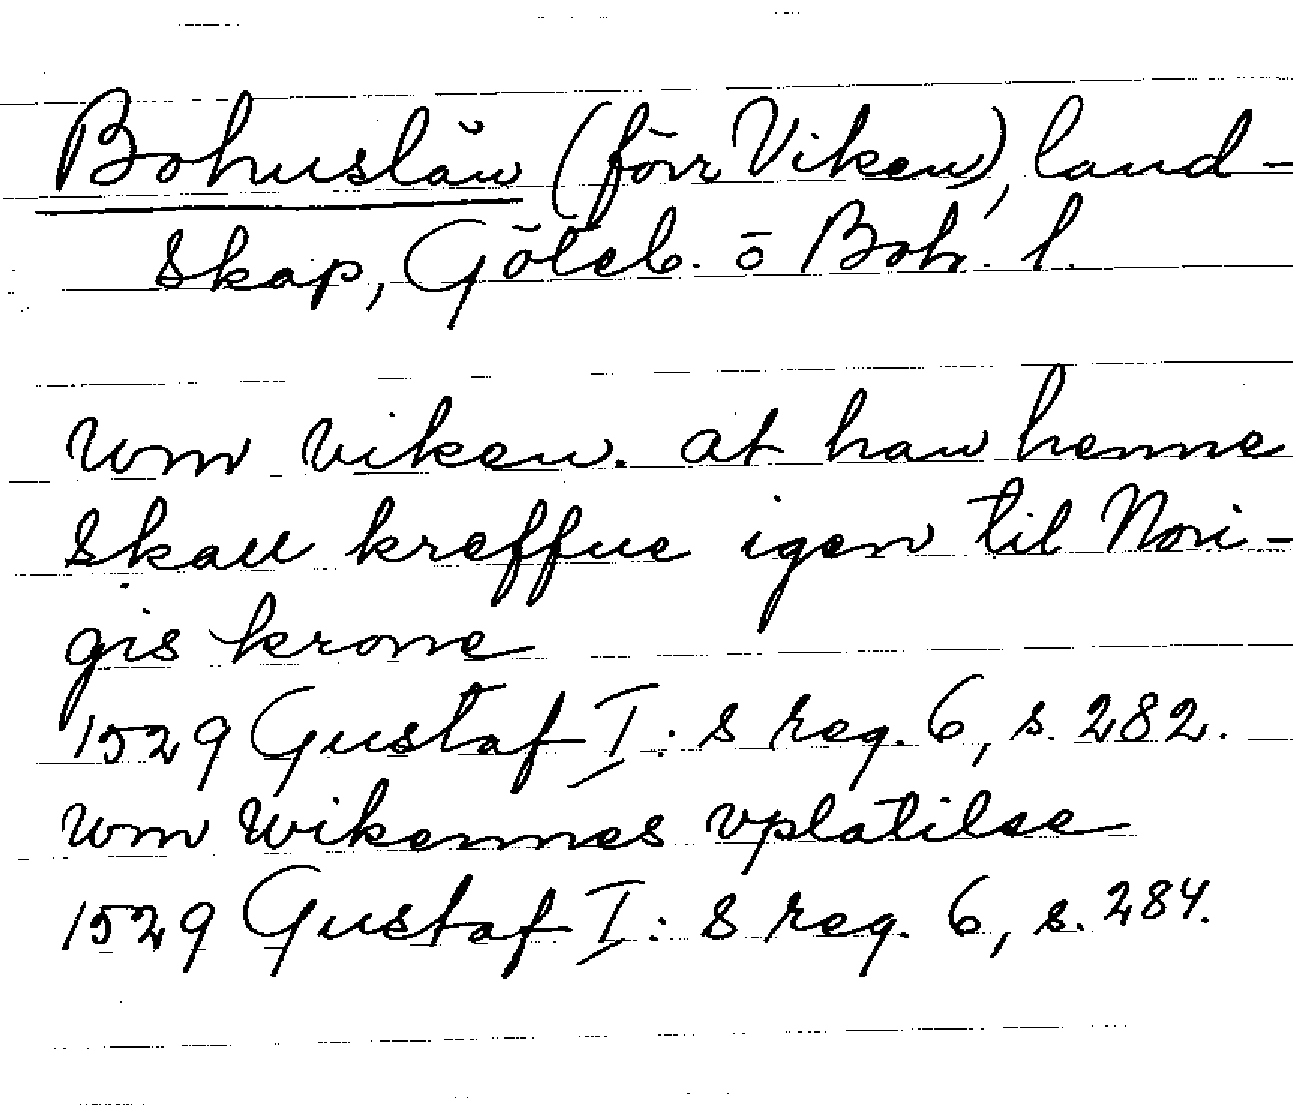 Bohuslän (förr Viken), land-
skap, Göteb. ō Boh. l.
Wm viken. at han henne
skall kreffue igen til Nori-
gis krone
1529 Gustaf I:s reg. 6, s. 282.
Wm Wikennes vplatilse
1529 Gustaf I:s reg. 6, s. 284.